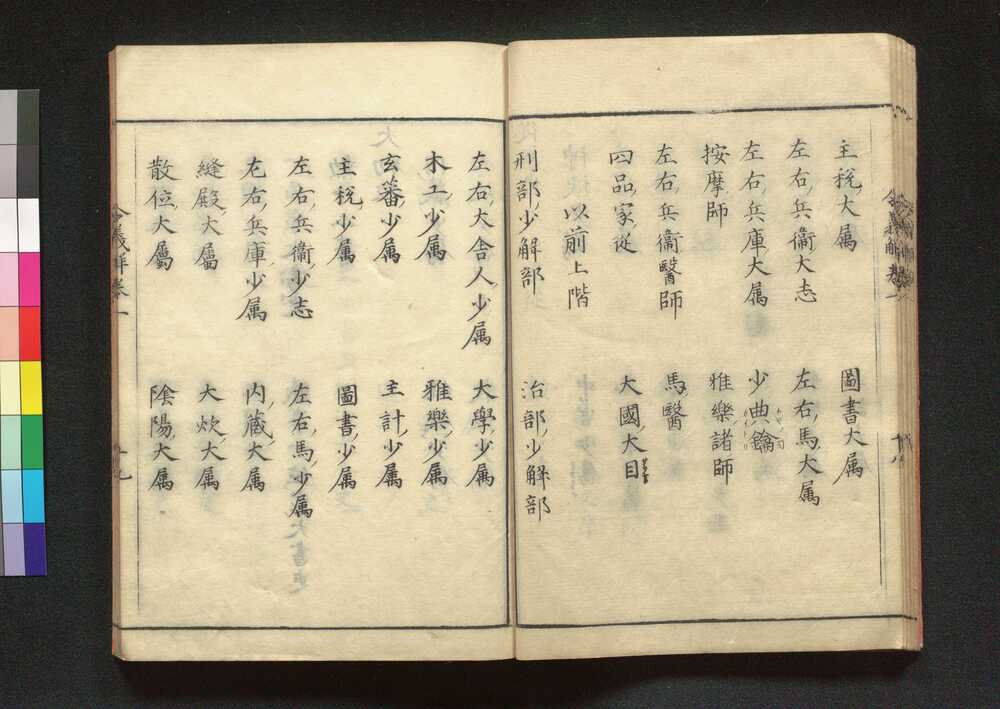 主税大属 圖書大属
左右兵衞大志 左右馬大属
左右兵庫大属 少典鑰
按摩師 雅樂諸師
左右兵衞醫師 馬醫
四品家從 大國大目
以前上階
刑部少解部 治部少解部
左右大舍人少属 大學少属
木工少属 雅樂少属
玄蕃少属 主計少属
主税少属 圖書少属
左右兵衞少志 左右馬少属
左右兵庫少属 內藏大属
縫殿大屬 大炊大属
散位大屬 陰陽大属
令義解卷一 十九